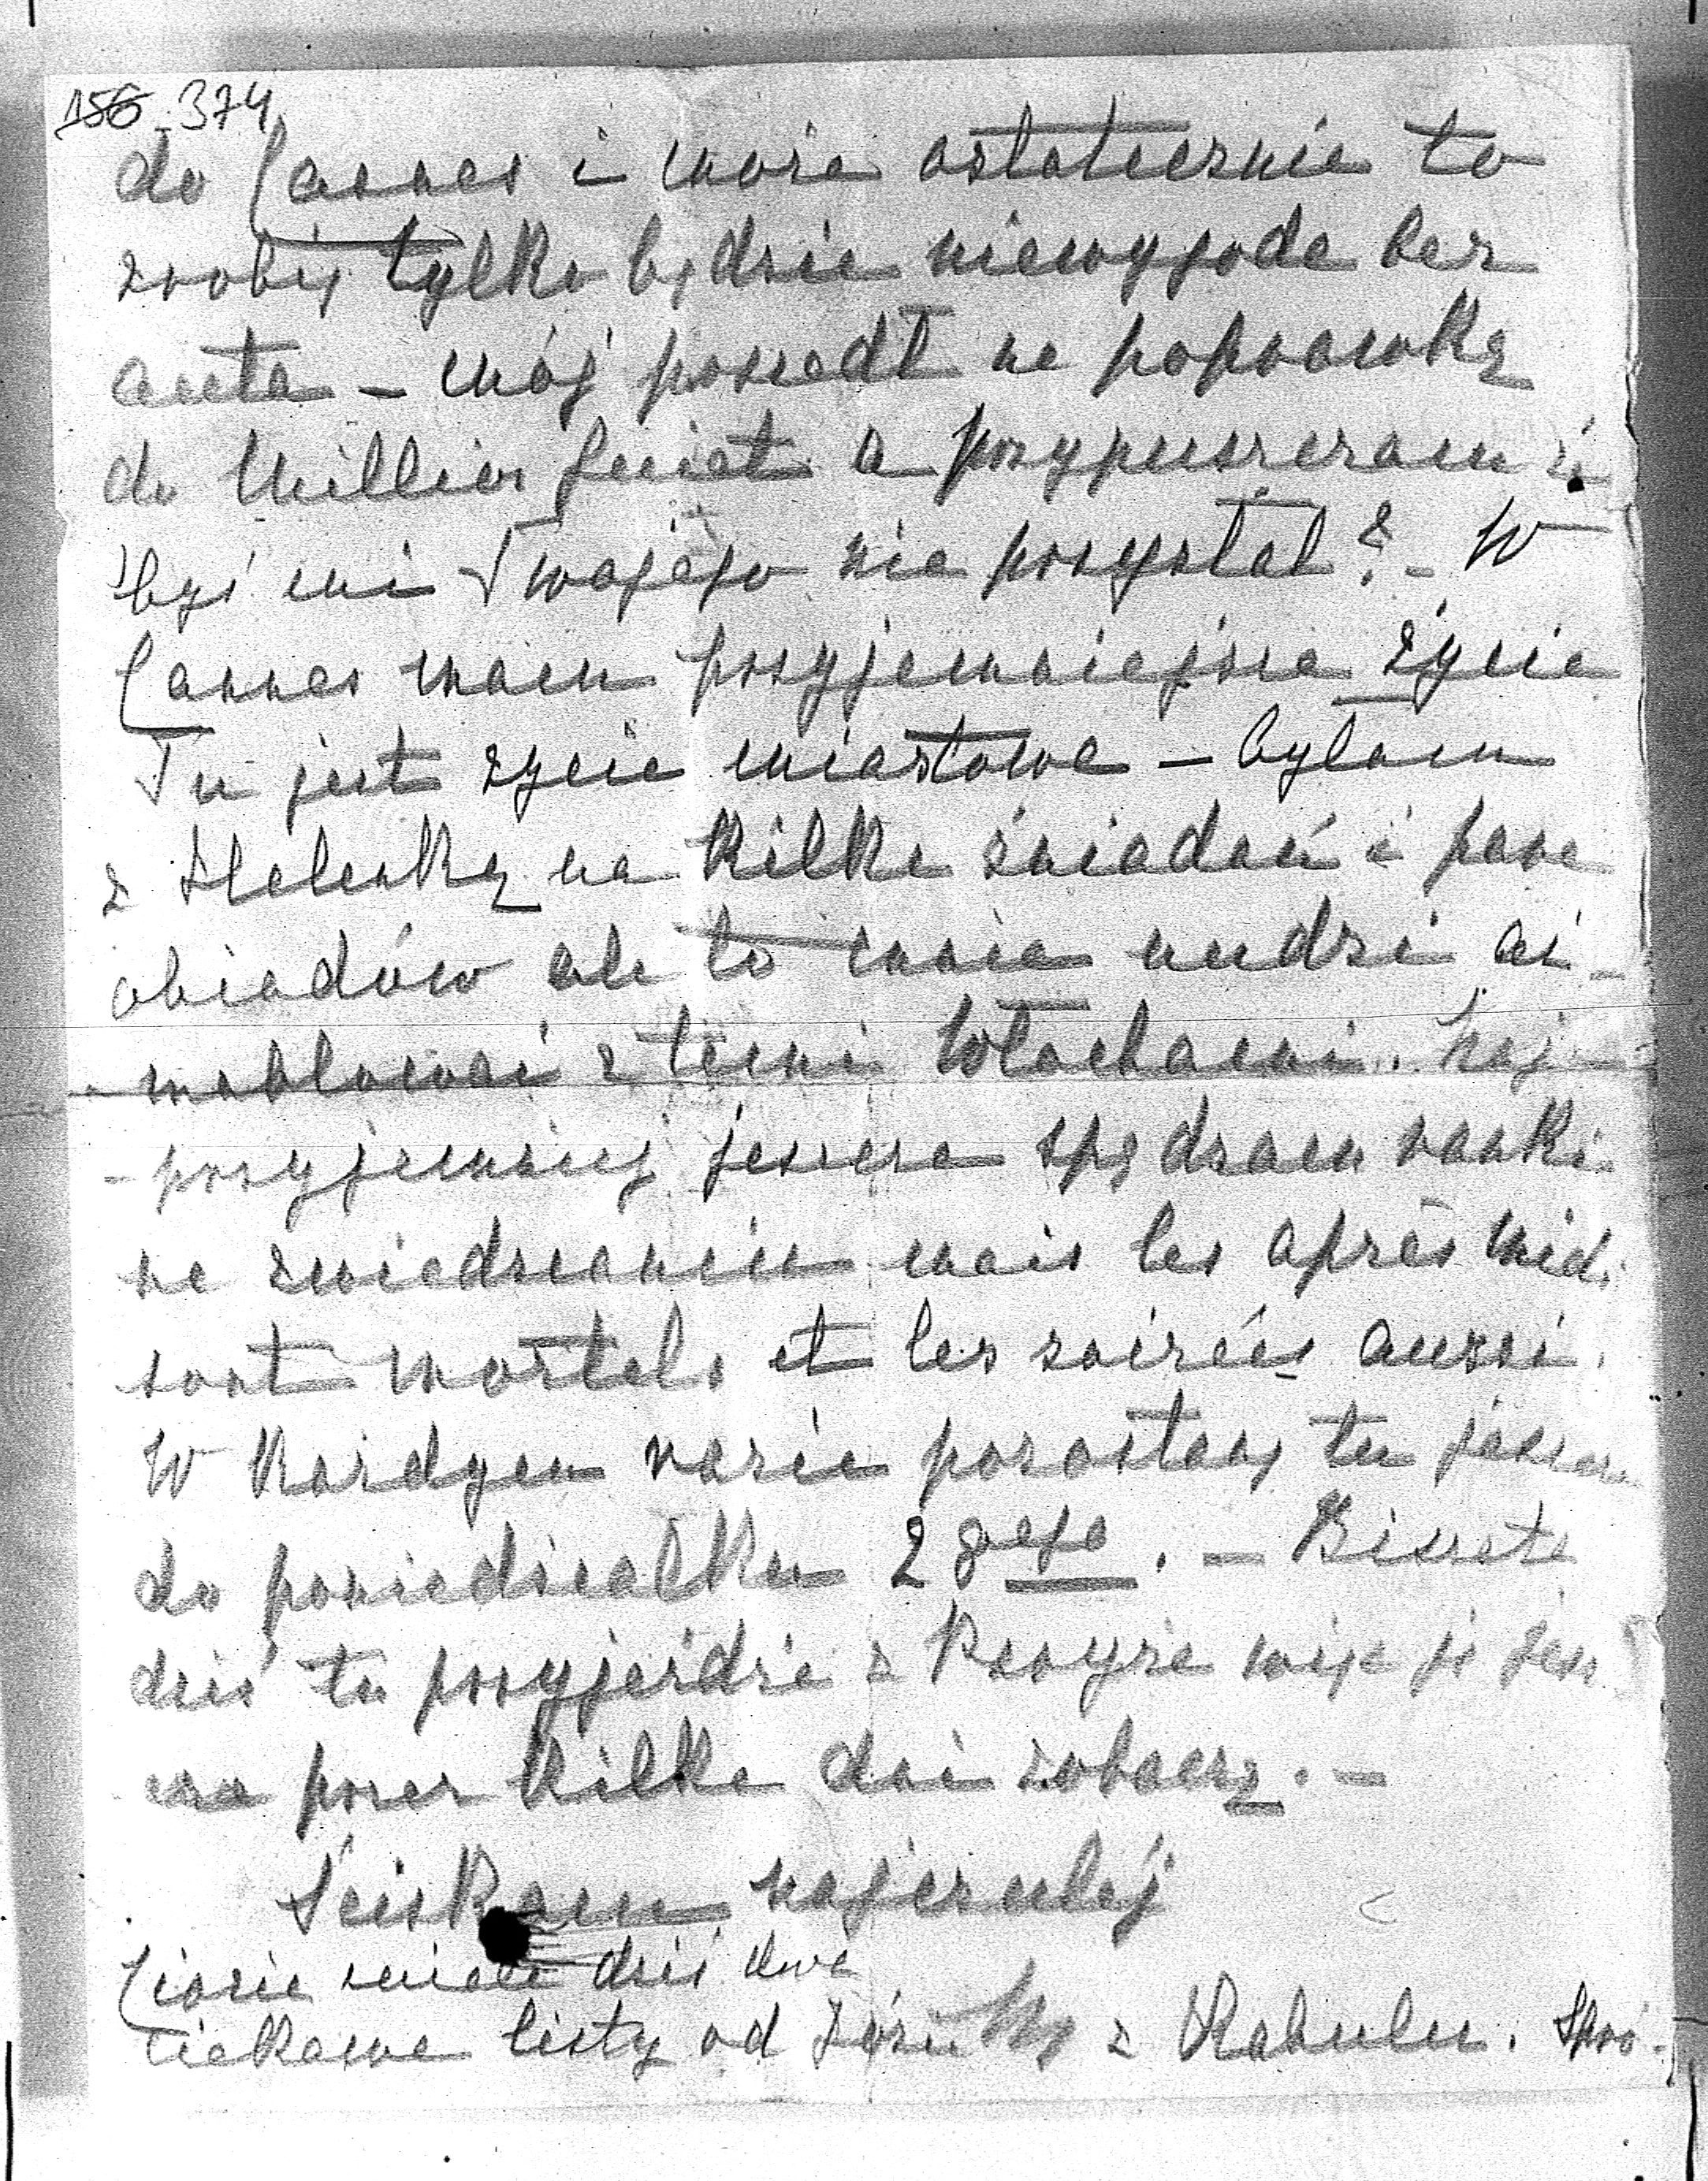 156 374
do Cannes i może ostatecznie to
zrobię tylko będzie niewygoda bez
auta – mój poszedł na poprawkę
do Million Guiet a przypuszczam że
byś mi Twojego nie przysłał? – W
Cannes mam przyjemniejsze życie
Tu jest życie miastowe – byłam
z Helenką na kilka śniadań i parę
obiadów ale to mnie nudzi ai-
mablować z temi Włochami. Naj-
-przyjemniej jeszcze spędzam ranki
na zwiedzaniu mais les après midi
sont mortels et les soirées aussi.
W każdym razie pozostaję tu jeszcze
do poniedziałku 28ego. –
dziś tu przyjeżdża z więc ją jesz
cze przez kilka dni zobaczę. –
Ściskam najczulej
dziś dwa
ciekawe listy od z Kabulu.